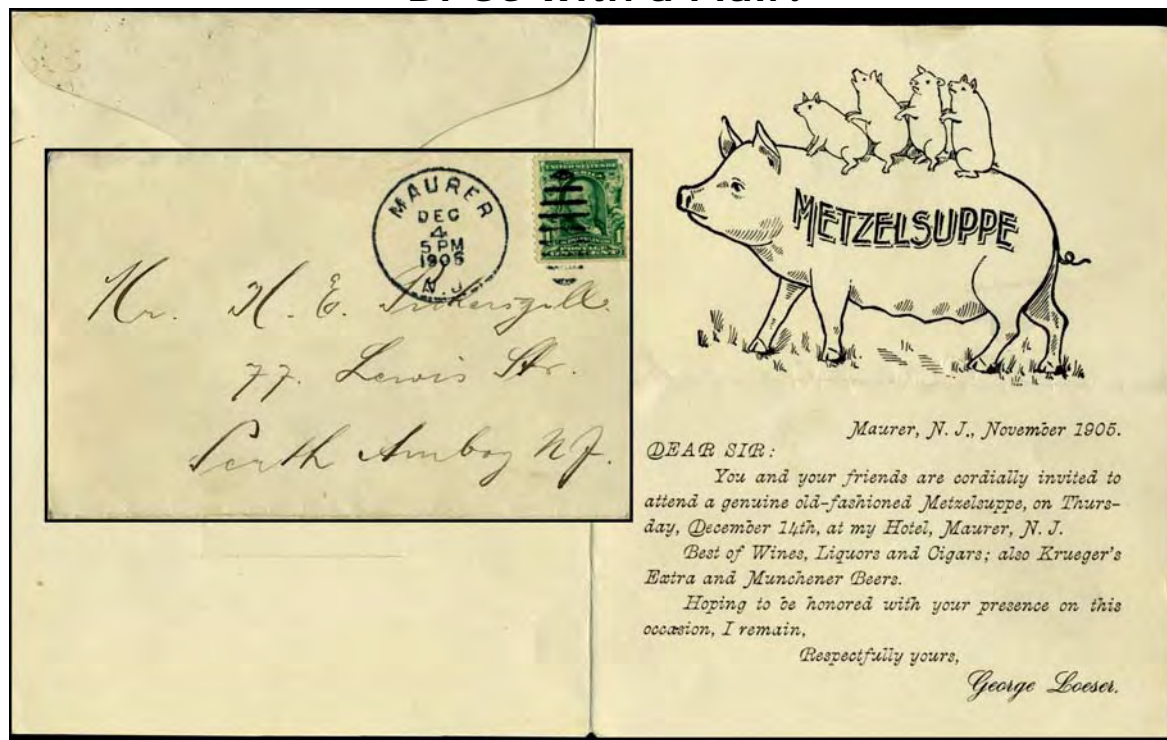 MAURER
DEC
4
5 PM
1905
N.J.
Mr. H. E. Pickersgill
77. Lewis Str.
Perth Amboy N J.
METZELSUPPE
Maurer, N. J., November 1905.
DEAR SIR:
You and your friends are cordially invited to
attend a genuine old-fashioned Metzelsuppe, on Thurs-
day, December 14th, at my Hotel, Maurer, N. J.
Best of Wines, Liquors and Cigars; also Krueger's
Extra and Munchener Beers.
Hoping to be honored with your presence on this
occasion, I remain,
Respectfully yours,
George Loeser.